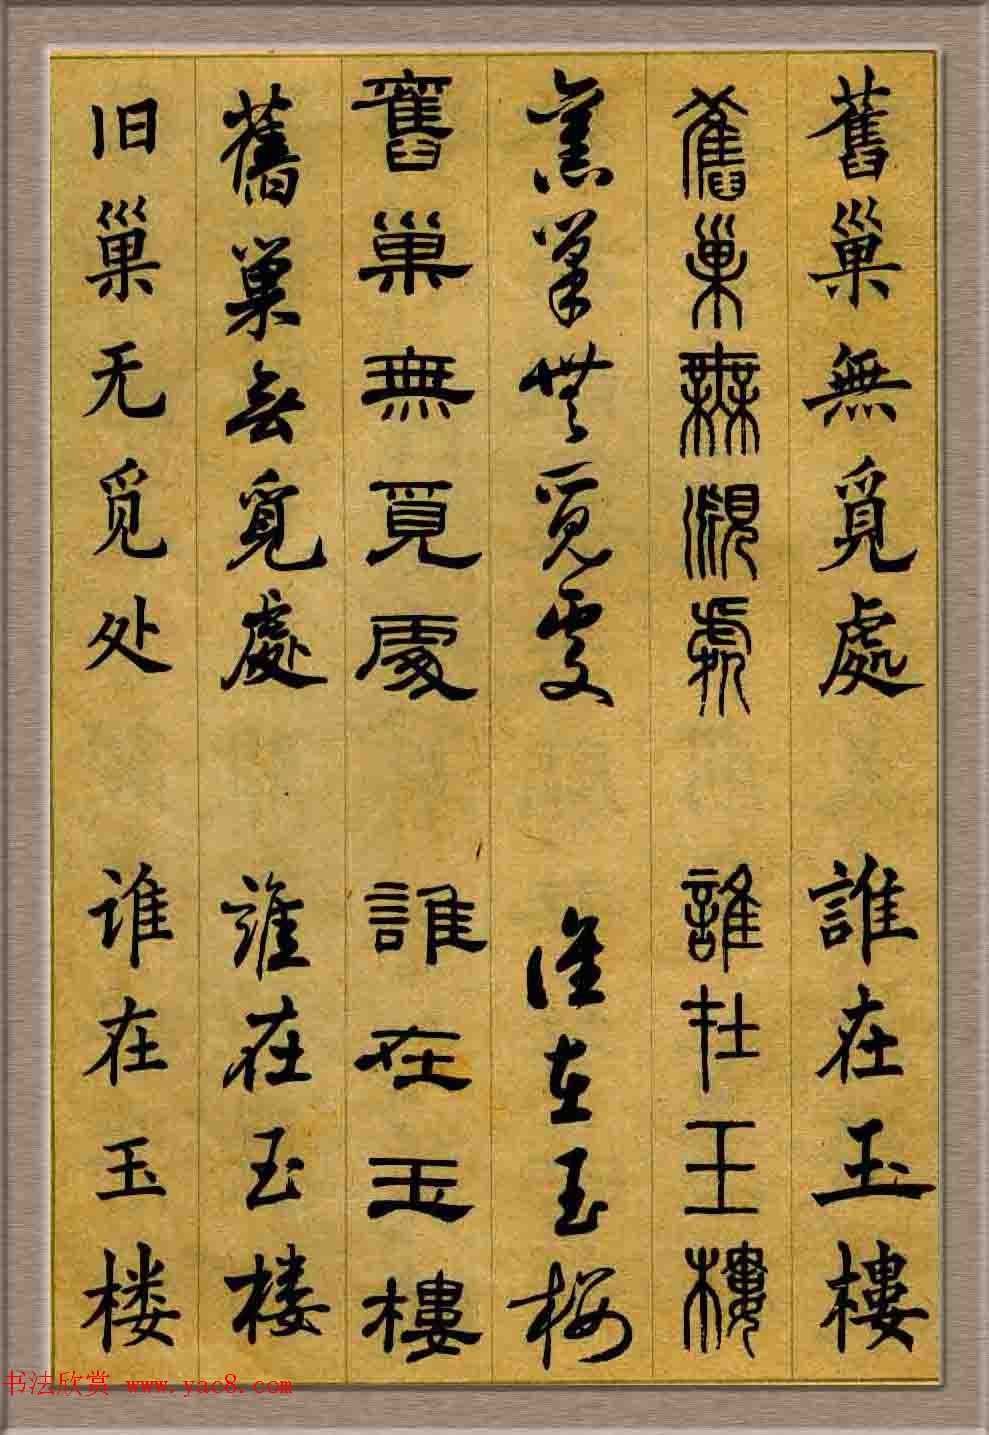 舊巢無覓處 誰在玉樓
舊巢無覓處 誰在玉樓
舊巢無覓處 誰在玉樓
舊巢無覓處 誰在玉樓
舊巢無覓處 誰在玉樓
旧巢无觅处 谁在玉楼
书法欣赏 www.yac8.com